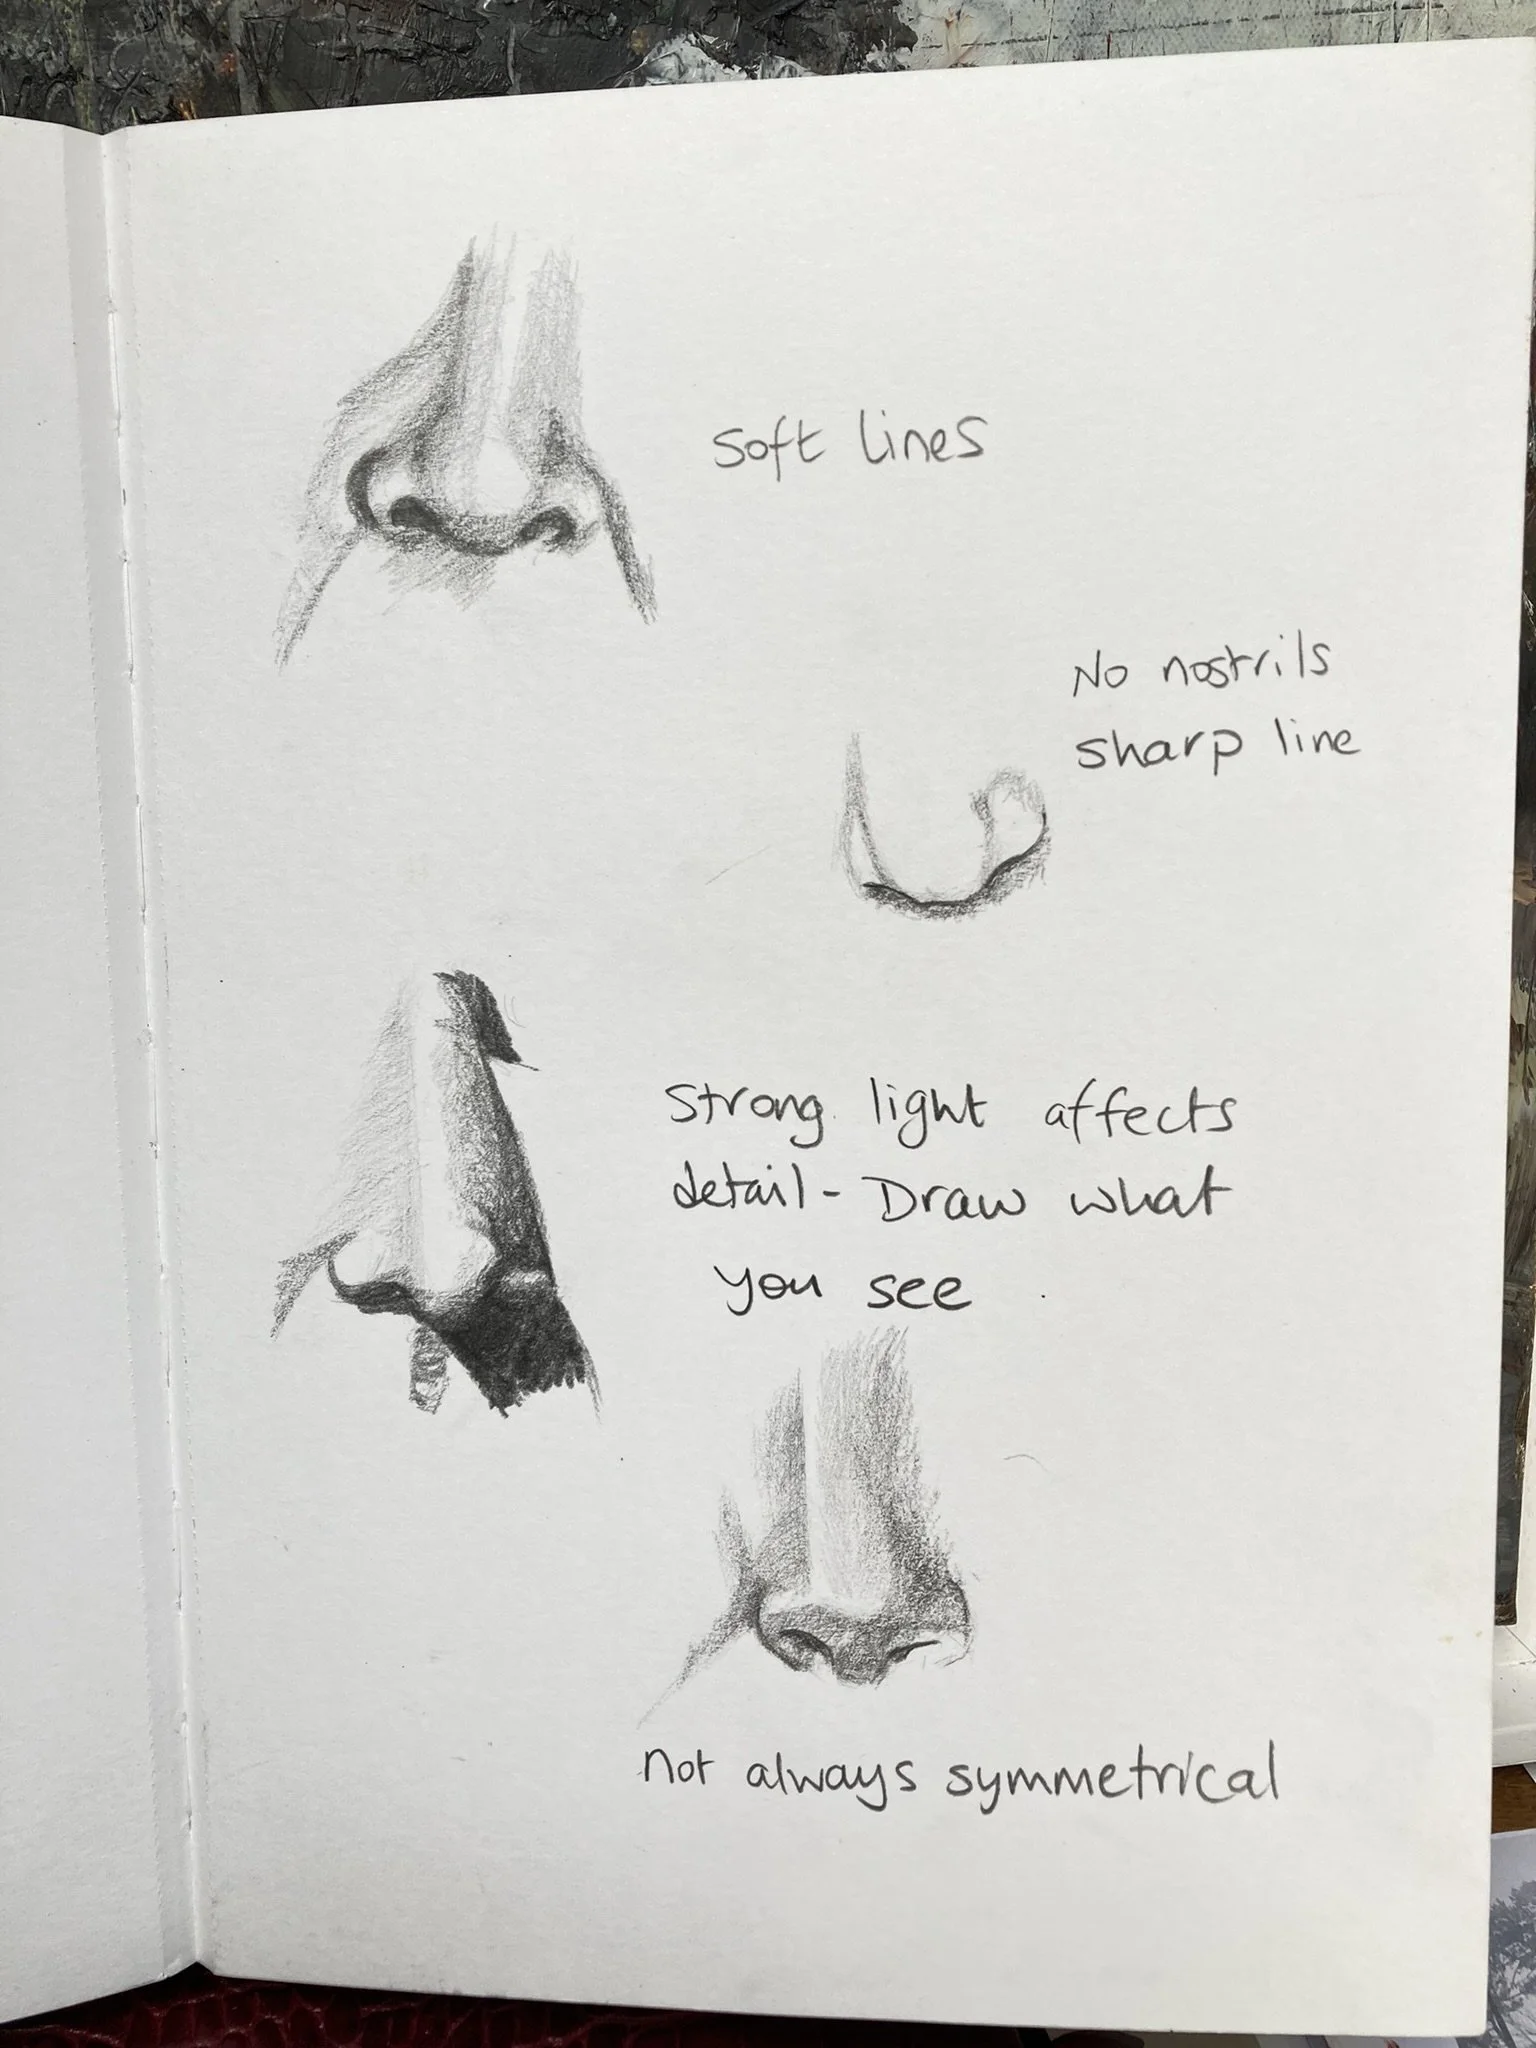 Soft lines
No nostrils
sharp line
Strong light affects
detail - Draw what
you see
not always symmetrical